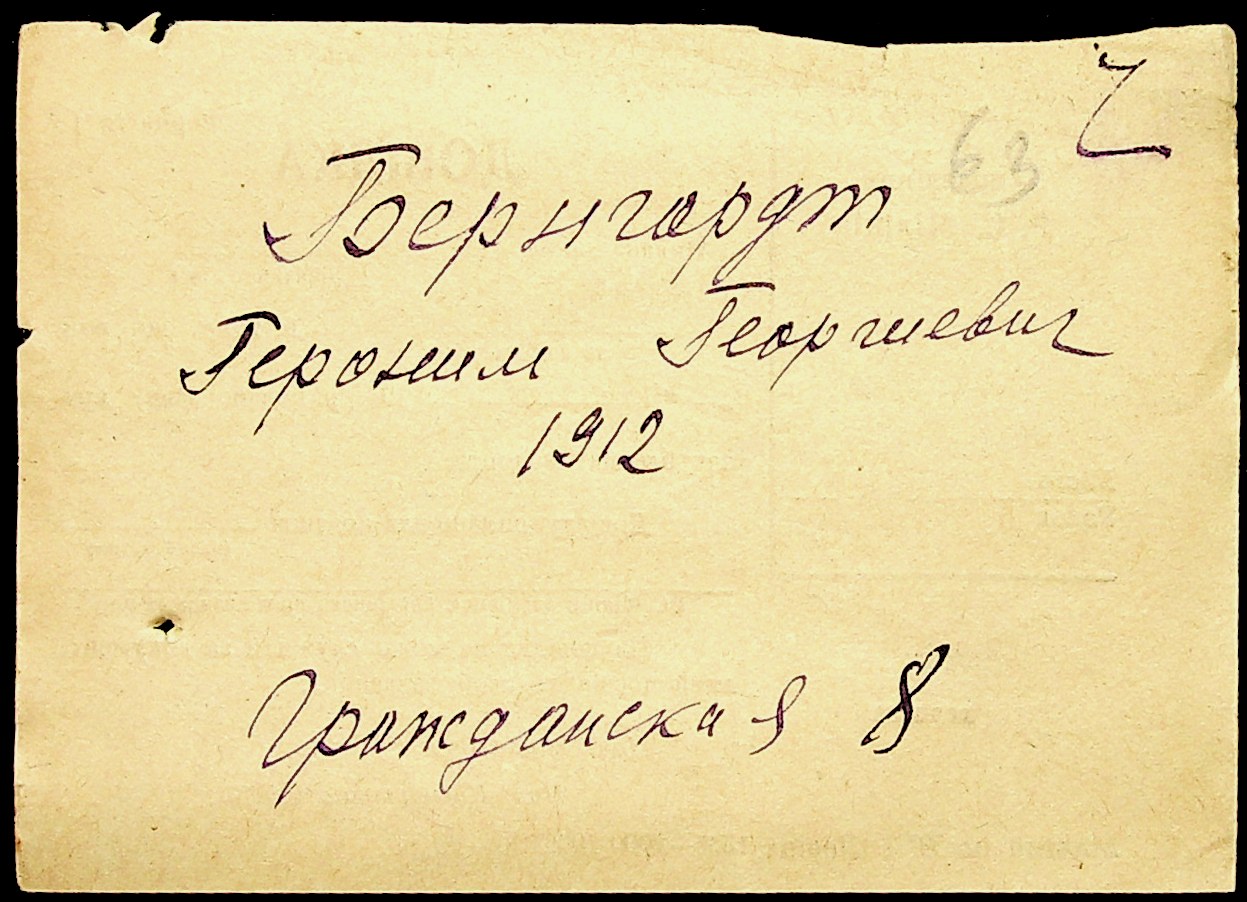 Ч
63
Бернгордт
Героним Георгиевич
1912
Гражданская 8